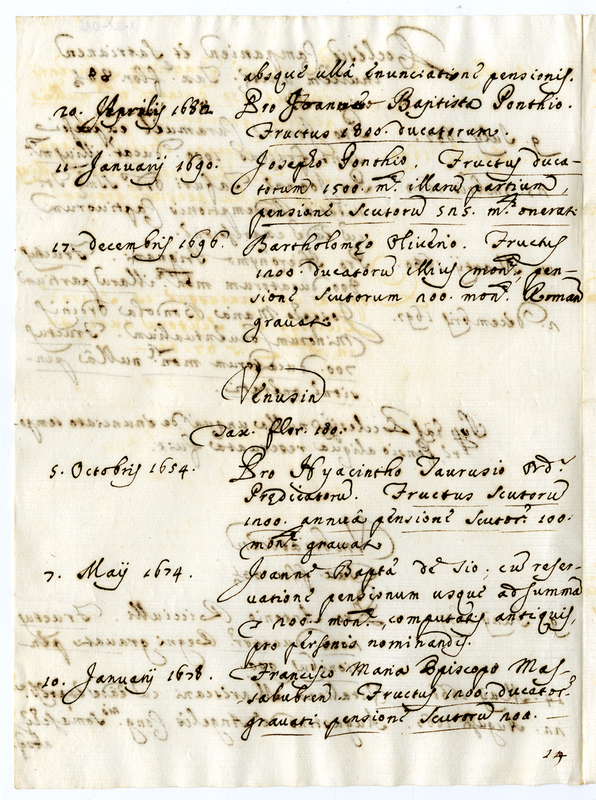 absque ullâ enunciatione pensionis.
20. Aprilis 1682 Pro Joanne Baptista Ponthio.
Fructus 1300. ducatorum.
11. Januarij 1690. Josepho Ponthio. Fructus duca-
torum 1500. m.ᵗᵉ illarũ partium,
pensione scutorũ 525. m.ᵗᵉ onerat.
17. decembris 1696. Bartholomeo Oliuerio. Fructus
1200. ducatorũ illius mon.ᵗᵉ pen-
sione scutorum 200. mon.ᵗᵉ Roman
grauat.
Venusin
Tax. flor. 180.
5. Octobris 1654. Pro Hyacintho Taurusio Ord.ˢ
Prędicatorũ. Fructus scutorũ
1200. annuâ pensione scutor. 100.
mon.ᵗᵉ grauat.
7. Maij 1674. Joanne Baptã de Sio, cũ reser-
uatione pensionum usque ad summã
200. mon.ᵗᵉ computatis antiquis,
pro personis nominandis.
10. Januarij 1678. Francisco Maria Episcopo Mas-
salubren. Fructus 1200. ducator.
grauati pensione scutorũ 202.
14